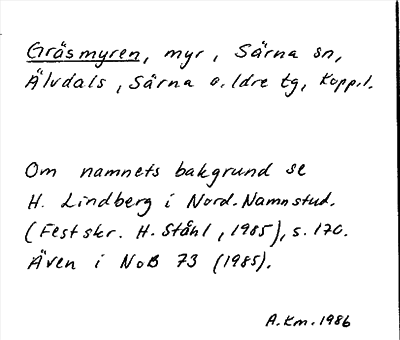 Gräsmyren, myr, Särna sn,
Älvdals, Särna o. Idre tg, Kopp.l.
Om namnets bakgrund se
H. Lindberg i Nord. Namnstud.
(Festskr. H. Ståhl, 1985), s. 170.
Även i NoB 73 (1985).
A.Km. 1986